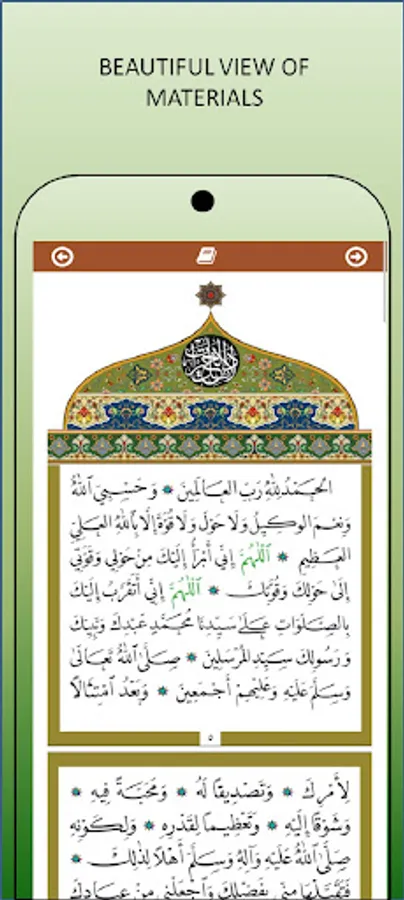 BEAUTIFUL VIEW OF
MATERIALS
الْحَمْدُ لِلَّهِ رَبِّ الْعَالَمِينَ * وَحَسْبِيَ اللَّهُ
وَنِعْمَ الْوَكِيلُ وَلَا حَوْلَ وَلَا قُوَّةَ إِلَّا بِاللَّهِ الْعَلِيِّ
الْعَظِيمِ * اللَّهُمَّ إِنِّي أَبْرَأُ إِلَيْكَ مِنْ حَوْلِي وَقُوَّتِي
إِلَى حَوْلِكَ وَقُوَّتِكَ * اللَّهُمَّ إِنِّي أَتَقَرَّبُ إِلَيْكَ
بِالصَّلَوَاتِ عَلَى سَيِّدِنَا مُحَمَّدٍ عَبْدِكَ وَنَبِيِّكَ
وَرَسُولِكَ سَيِّدِ الْمُرْسَلِينَ * صَلَّى اللَّهُ تَعَالَى
وَسَلَّمَ عَلَيْهِ وَعَلَيْهِمْ أَجْمَعِينَ * وَبَعْدُ امْتِثَالًا
٥
لِأَمْرِكَ * وَتَصْدِيقًا لَهُ * وَمَحَبَّةً فِيهِ *
وَشَوْقًا إِلَيْهِ * وَتَعْظِيمًا لِقَدْرِهِ * وَلِكَوْنِهِ
صَلَّى اللَّهُ عَلَيْهِ وَآلِهِ وَسَلَّمَ أَهْلًا لِذَلِكَ *
فَتَقَبَّلْهَا مِنِّي بِفَضْلِكَ وَاجْعَلْنِي مِنْ عِبَادِكَ